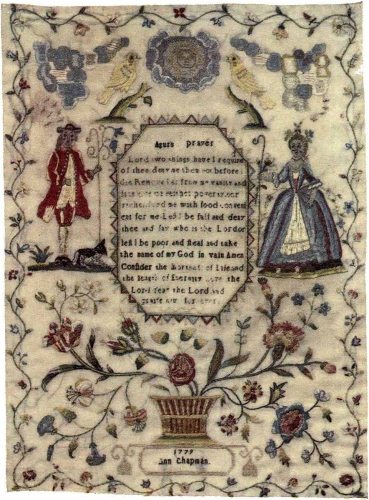 Agurs prayer
Lord two things have I require
of thee deny me them not before I
die Remove far from me vanity and
lies give me neither poverty nor
riches feed me with food conveni
ent for me Lest I be full and deny
thee and say who is the Lord or
lest I be poor and steal and take
the name of my God in vain Amen
Consider the Shortness of Life and
the length of Eternity Love the
Lord fear the Lord and
praise him for ever
1779
Ann Chapman